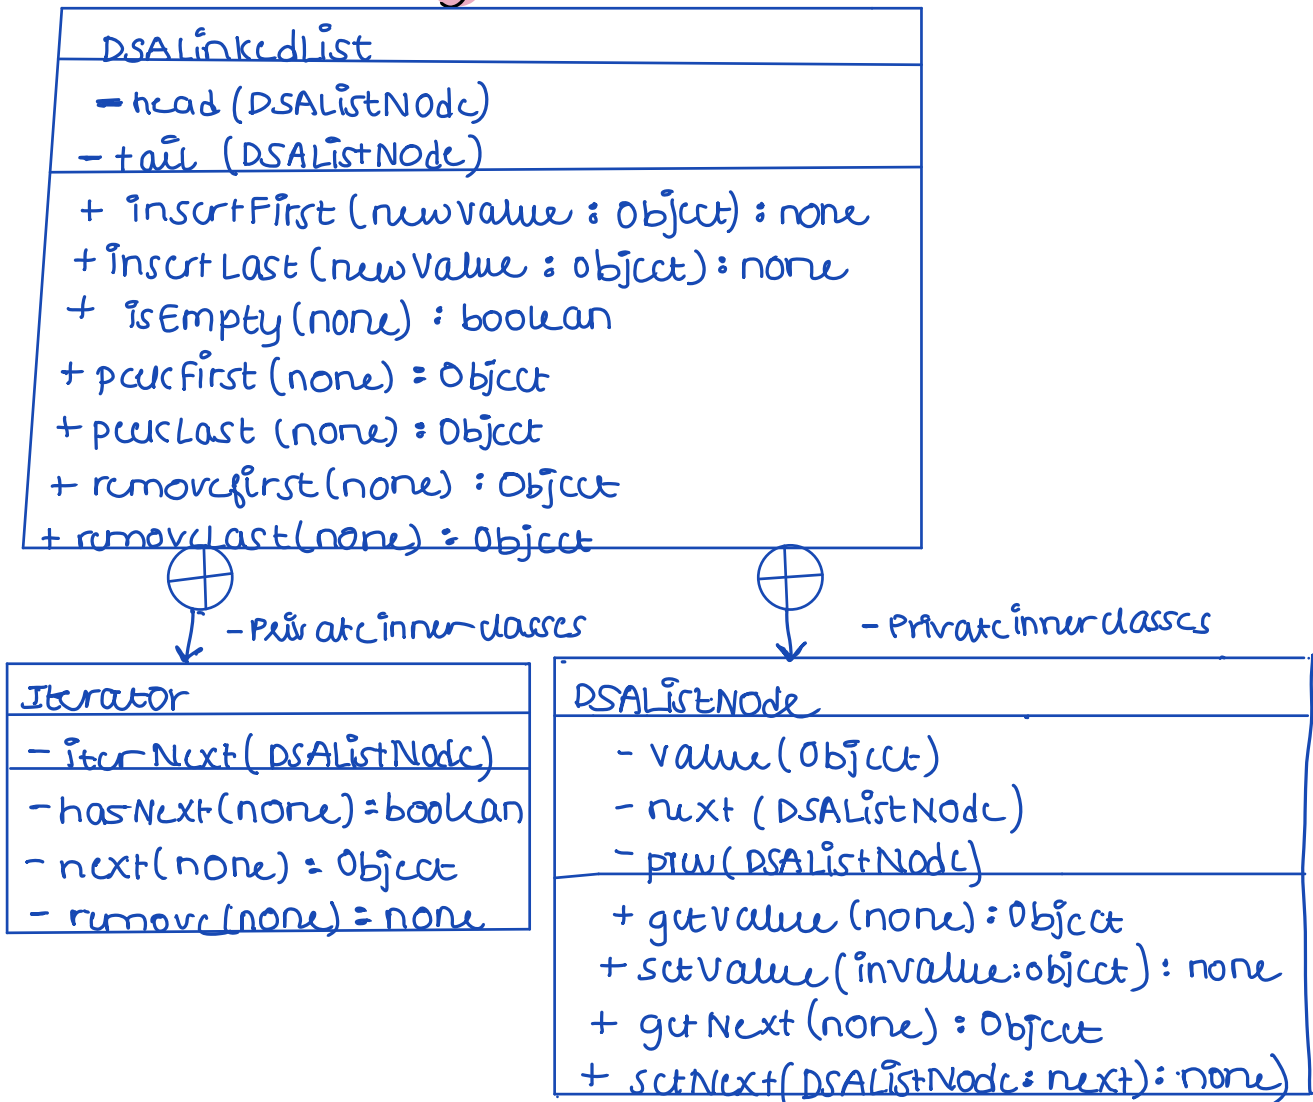 DSALinkedList
- head (DSAListNode)
- tail (DSAListNode)
+ insertFirst (newvalue : Object) : none
+ insertLast (newValue : object) : none
+ isEmpty (none) : boolean
+ peekfirst (none) : Object
+ peekLast (none) : Object
+ removefirst (none) : Object
+ removeLast (none) : Object
- Private inner classes
- Private inner classes
Iterator
- iterNext (DSAListNode)
- hasNext (none) : boolean
- next (none) : Object
- remove (none) : none
DSAListNode
- value (Object)
- next (DSAListNode)
- prev (DSAListNode)
+ getvalue (none) : Object
+ setValue (invalue : object) : none
+ getNext (none) : Object
+ setNext (DSAListNode : next) : none)